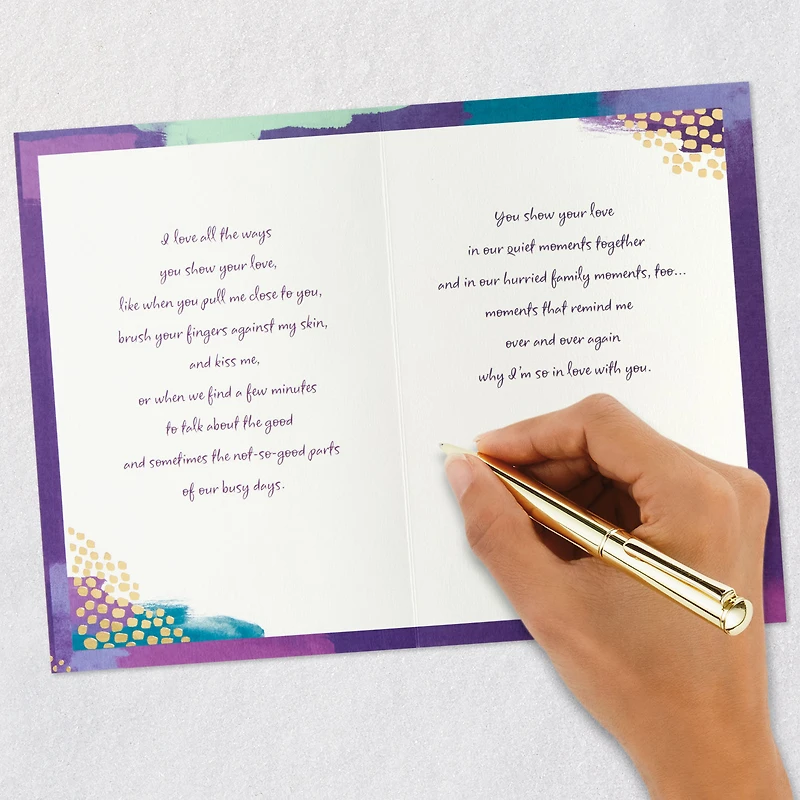 I love all the ways
you show your love,
like when you pull me close to you,
brush your fingers against my skin,
and kiss me,
or when we find a few minutes
to talk about the good
and sometimes the not-so-good parts
of our busy days.
You show your love
in our quiet moments together
and in our hurried family moments, too...
moments that remind me
over and over again
why I'm so in love with you.